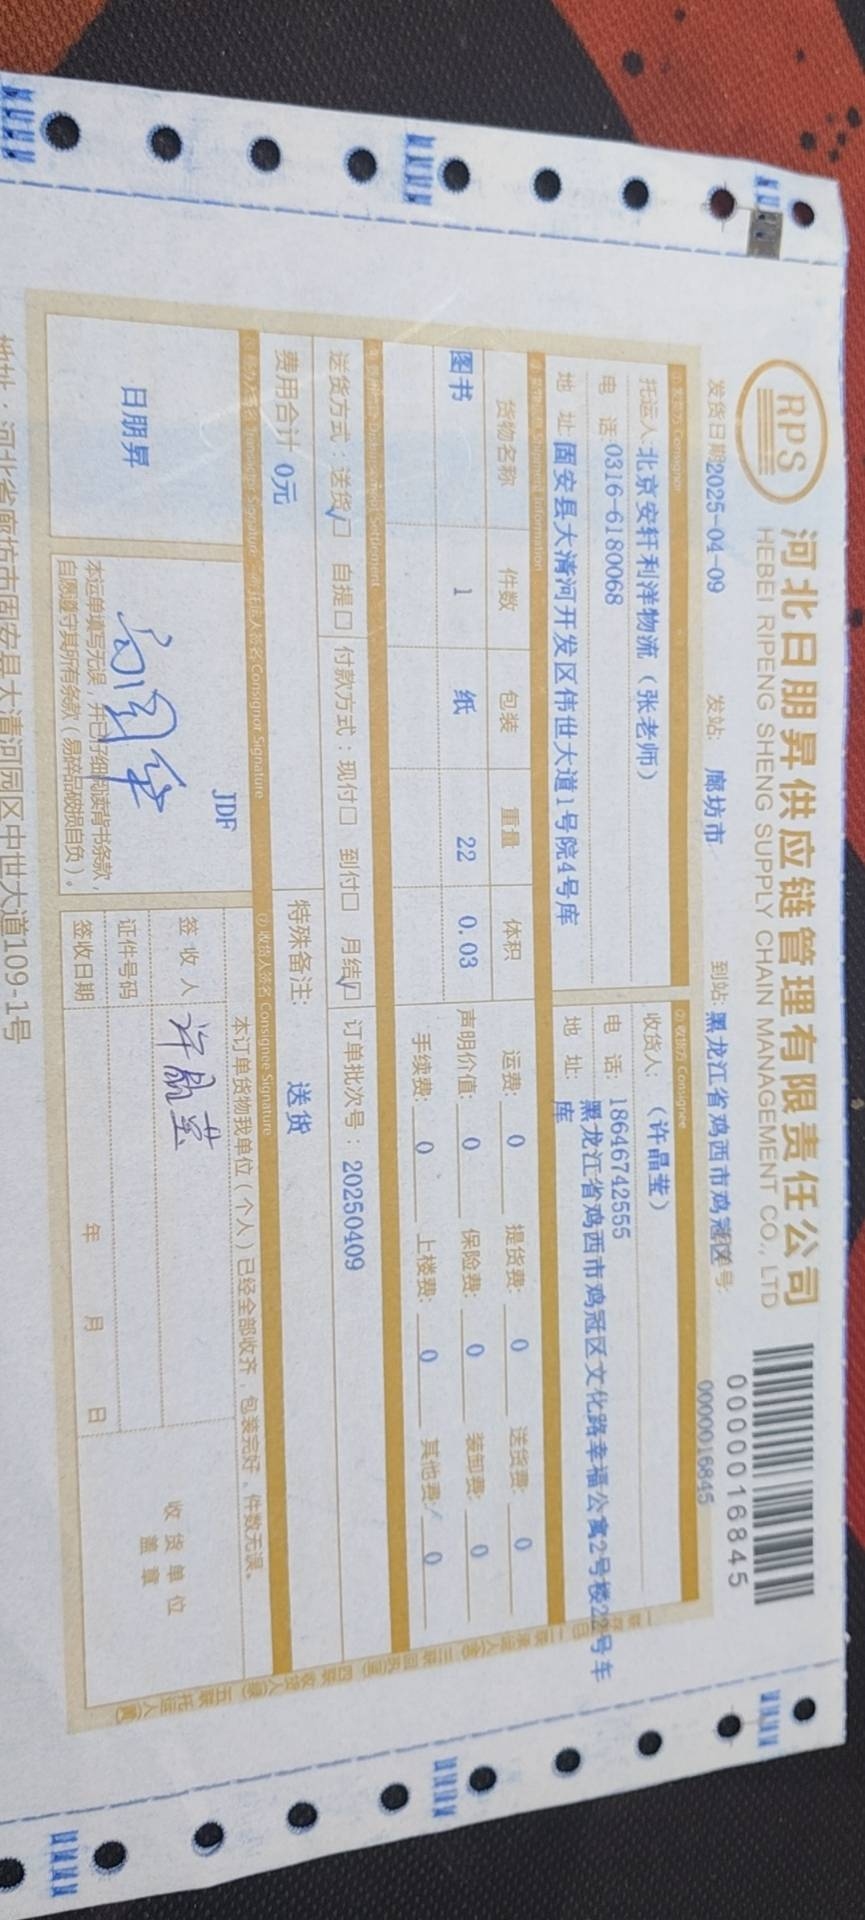 RPS
河北日朋昇供应链管理有限责任公司
HEBEI RIPENG SHENG SUPPLY CHAIN MANAGEMENT CO., LTD
0000016845
发货日期2025-04-09 发站: 廊坊市 到站:黑龙江省鸡西市鸡冠区 单号: 0000016845
①发货方 Consignor
托运人:北京安轩利洋物流(张老师)
电 话:0316-6180068
地 址:固安县大清河开发区伟世大道1号院4号库
②收货方 Consignee
收货人: (许晶莹)
电 话: 18646742555
地 址: 黑龙江省鸡西市鸡冠区文化路幸福公寓2号楼22号车
库
Shipment Information
货物名称 件数 包装 重量 体积
图书 1 纸 22 0.03
运费: 0 提货费: 0 送货费: 0
声明价值: 0 保险费: 0 装卸费: 0
手续费: 0 上楼费: 0 其他费: 0
Disbursement Settlement
送货方式:送货☑ 自提□ 付款方式:现付□ 到付□ 月结☑ 订单批次号:20250409
费用合计 0元 特殊备注: 送货
Consignor Signature
⑦收货人签名 Consignee Signature
日朋昇
JDF
本运单填写无误,并已仔细阅读背书条款,
自愿遵守其所有条款(易碎品破损自负)。
本订单货物我单位(个人)已经全部收齐,包装完好,件数无误。
签 收 人 许晶莹
证件号码
签收日期 年 月 日
收货单位
盖章
地址:河北省廊坊市固安县大清河园区中世大道109-1号